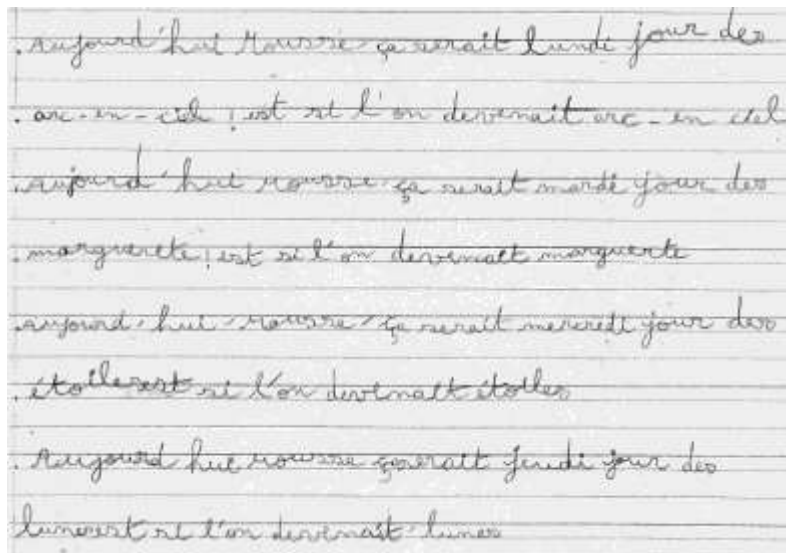 . Aujourd'hui rousse ça serait lundi jour des
. arc-en-ciel ! est si l'on devenait arc-en ciel
. aujourd'hui rousse ça serait mardi jour des
. marguerete ! est si l'on devenait marguerte
. aujourd'hui rousse ça serait mercredi jour des
. étoilesest si l'on devenait étoiles
. Aujourd hui rousse çaserait jeudi jour des
lunesest si l'on devenait lunes